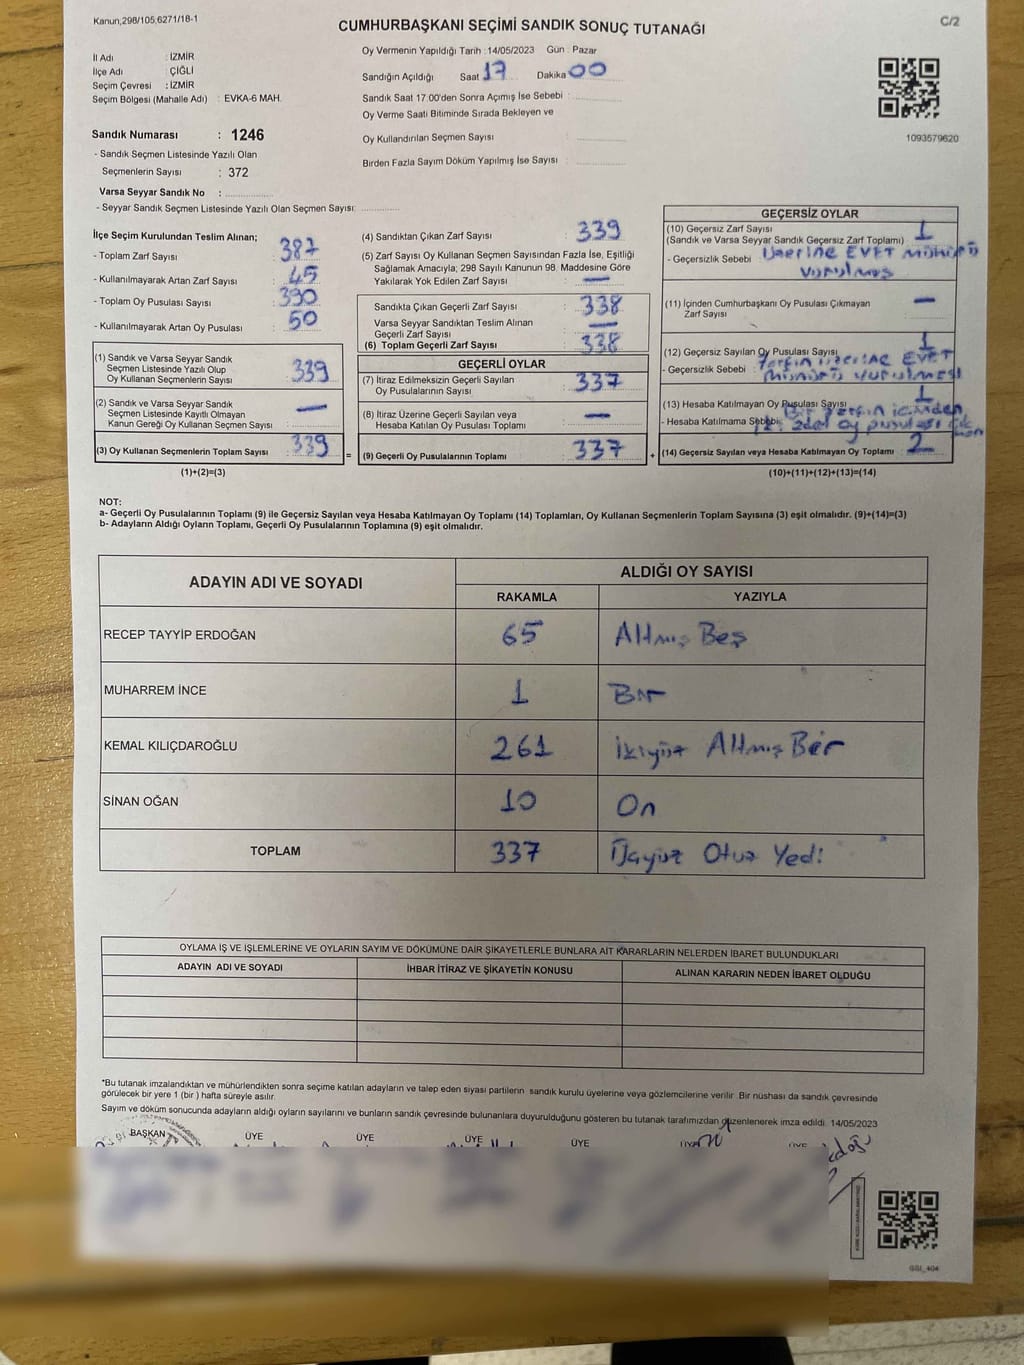 Kanun,298/105,6271/18-1
CUMHURBAŞKANI SEÇİMİ SANDIK SONUÇ TUTANAĞI
C/2
İl Adı : İZMİR
İlçe Adı : ÇİĞLİ
Seçim Çevresi : İZMİR
Seçim Bölgesi (Mahalle Adı) : EVKA-6 MAH.
Sandık Numarası : 1246
- Sandık Seçmen Listesinde Yazılı Olan
Seçmenlerin Sayısı : 372
Varsa Seyyar Sandık No :
- Seyyar Sandık Seçmen Listesinde Yazılı Olan Seçmen Sayısı:
Oy Vermenin Yapıldığı Tarih :14/05/2023 Gün : Pazar
Sandığın Açıldığı Saat 17 Dakika 00
Sandık Saat 17.00'den Sonra Açımış İse Sebebi :
Oy Verme Saati Bitiminde Sırada Bekleyen ve
Oy Kullandırılan Seçmen Sayısı :
Birden Fazla Sayım Döküm Yapılmış İse Sayısı :
1093579620
İlçe Seçim Kurulundan Teslim Alınan;
- Toplam Zarf Sayısı : 387
- Kullanılmayarak Artan Zarf Sayısı : 45
- Toplam Oy Pusulası Sayısı : 390
- Kullanılmayarak Artan Oy Pusulası : 50
(1) Sandık ve Varsa Seyyar Sandık
Seçmen Listesinde Yazılı Olup
Oy Kullanan Seçmenlerin Sayısı : 339
(2) Sandık ve Varsa Seyyar Sandık
Seçmen Listesinde Kayıtlı Olmayan
Kanun Gereği Oy Kullanan Seçmen Sayısı : —
(3) Oy Kullanan Seçmenlerin Toplam Sayısı : 339
(1)+(2)=(3)
(4) Sandıktan Çıkan Zarf Sayısı : 339
(5) Zarf Sayısı Oy Kullanan Seçmen Sayısından Fazla İse, Eşitliği
Sağlamak Amacıyla; 298 Sayılı Kanunun 98. Maddesine Göre
Yakılarak Yok Edilen Zarf Sayısı : —
Sandıkta Çıkan Geçerli Zarf Sayısı : 338
Varsa Seyyar Sandıktan Teslim Alınan
Geçerli Zarf Sayısı : —
(6) Toplam Geçerli Zarf Sayısı : 338
GEÇERLİ OYLAR
(7) İtiraz Edilmeksizin Geçerli Sayılan
Oy Pusulasının Sayısı : 337
(8) İtiraz Üzerine Geçerli Sayılan veya
Hesaba Katılan Oy Pusulası Toplamı : —
= (9) Geçerli Oy Pusulalarının Toplamı : 337 +
GEÇERSİZ OYLAR
(10) Geçersiz Zarf Sayısı 1
(Sandık ve Varsa Seyyar Sandık Geçersiz Zarf Toplamı) :
- Geçersizlik Sebebi : Üzerine EVET MÜHÜRÜ
vurulmuş
(11) İçinden Cumhurbaşkanı Oy Pusulası Çıkmayan
Zarf Sayısı : —
(12) Geçersiz Sayılan Oy Pusulası Sayısı : 1
- Geçersizlik Sebebi : Zarfın üzerine EVET
MÜHÜRÜ vurulması
(13) Hesaba Katılmayan Oy Pusulası Sayısı : 1
- Hesaba Katılmama Sebebi: Bir zarfın içinden
adet oy pusulası
(14) Geçersiz Sayılan veya Hesaba Katılmayan Oy Toplamı : 2
(10)+(11)+(12)+(13)=(14)
NOT:
a- Geçerli Oy Pusulalarının Toplamı (9) ile Geçersiz Sayılan veya Hesaba Katılmayan Oy Toplamı (14) Toplamları, Oy Kullanan Seçmenlerin Toplam Sayısına (3) eşit olmalıdır. (9)+(14)=(3)
b- Adayların Aldığı Oyların Toplamı, Geçerli Oy Pusulalarının Toplamına (9) eşit olmalıdır.
ADAYIN ADI VE SOYADI ALDIĞI OY SAYISI
RAKAMLA YAZIYLA
RECEP TAYYİP ERDOĞAN 65 Altmış Beş
MUHARREM İNCE 1 Bir
KEMAL KILIÇDAROĞLU 261 İkiyüz Altmış Bir
SİNAN OĞAN 10 On
TOPLAM 337 Üçyüz Otuz Yedi
OYLAMA İŞ VE İŞLEMLERİNE VE OYLARIN SAYIM VE DÖKÜMÜNE DAİR ŞİKAYETLERLE BUNLARA AİT KARARLARIN NELERDEN İBARET BULUNDUKLARI
ADAYIN ADI VE SOYADI İHBAR İTİRAZ VE ŞİKAYETİN KONUSU ALINAN KARARIN NEDEN İBARET OLDUĞU
*Bu tutanak imzalandıktan ve mühürlendikten sonra seçime katılan adayların ve talep eden siyasi partilerin sandık kurulu üyelerine veya gözlemcilerine verilir. Bir nüshası da sandık çevresinde
görülecek bir yere 1 (bir ) hafta süreyle asılır.
Sayım ve döküm sonucunda adayların aldığı oyların sayılarını ve bunların sandık çevresinde bulunanlara duyurulduğunu gösteren bu tutanak tarafımızdan düzenlenerek imza edildi. 14/05/2023
BAŞKAN ÜYE ÜYE ÜYE ÜYE
GSI_404